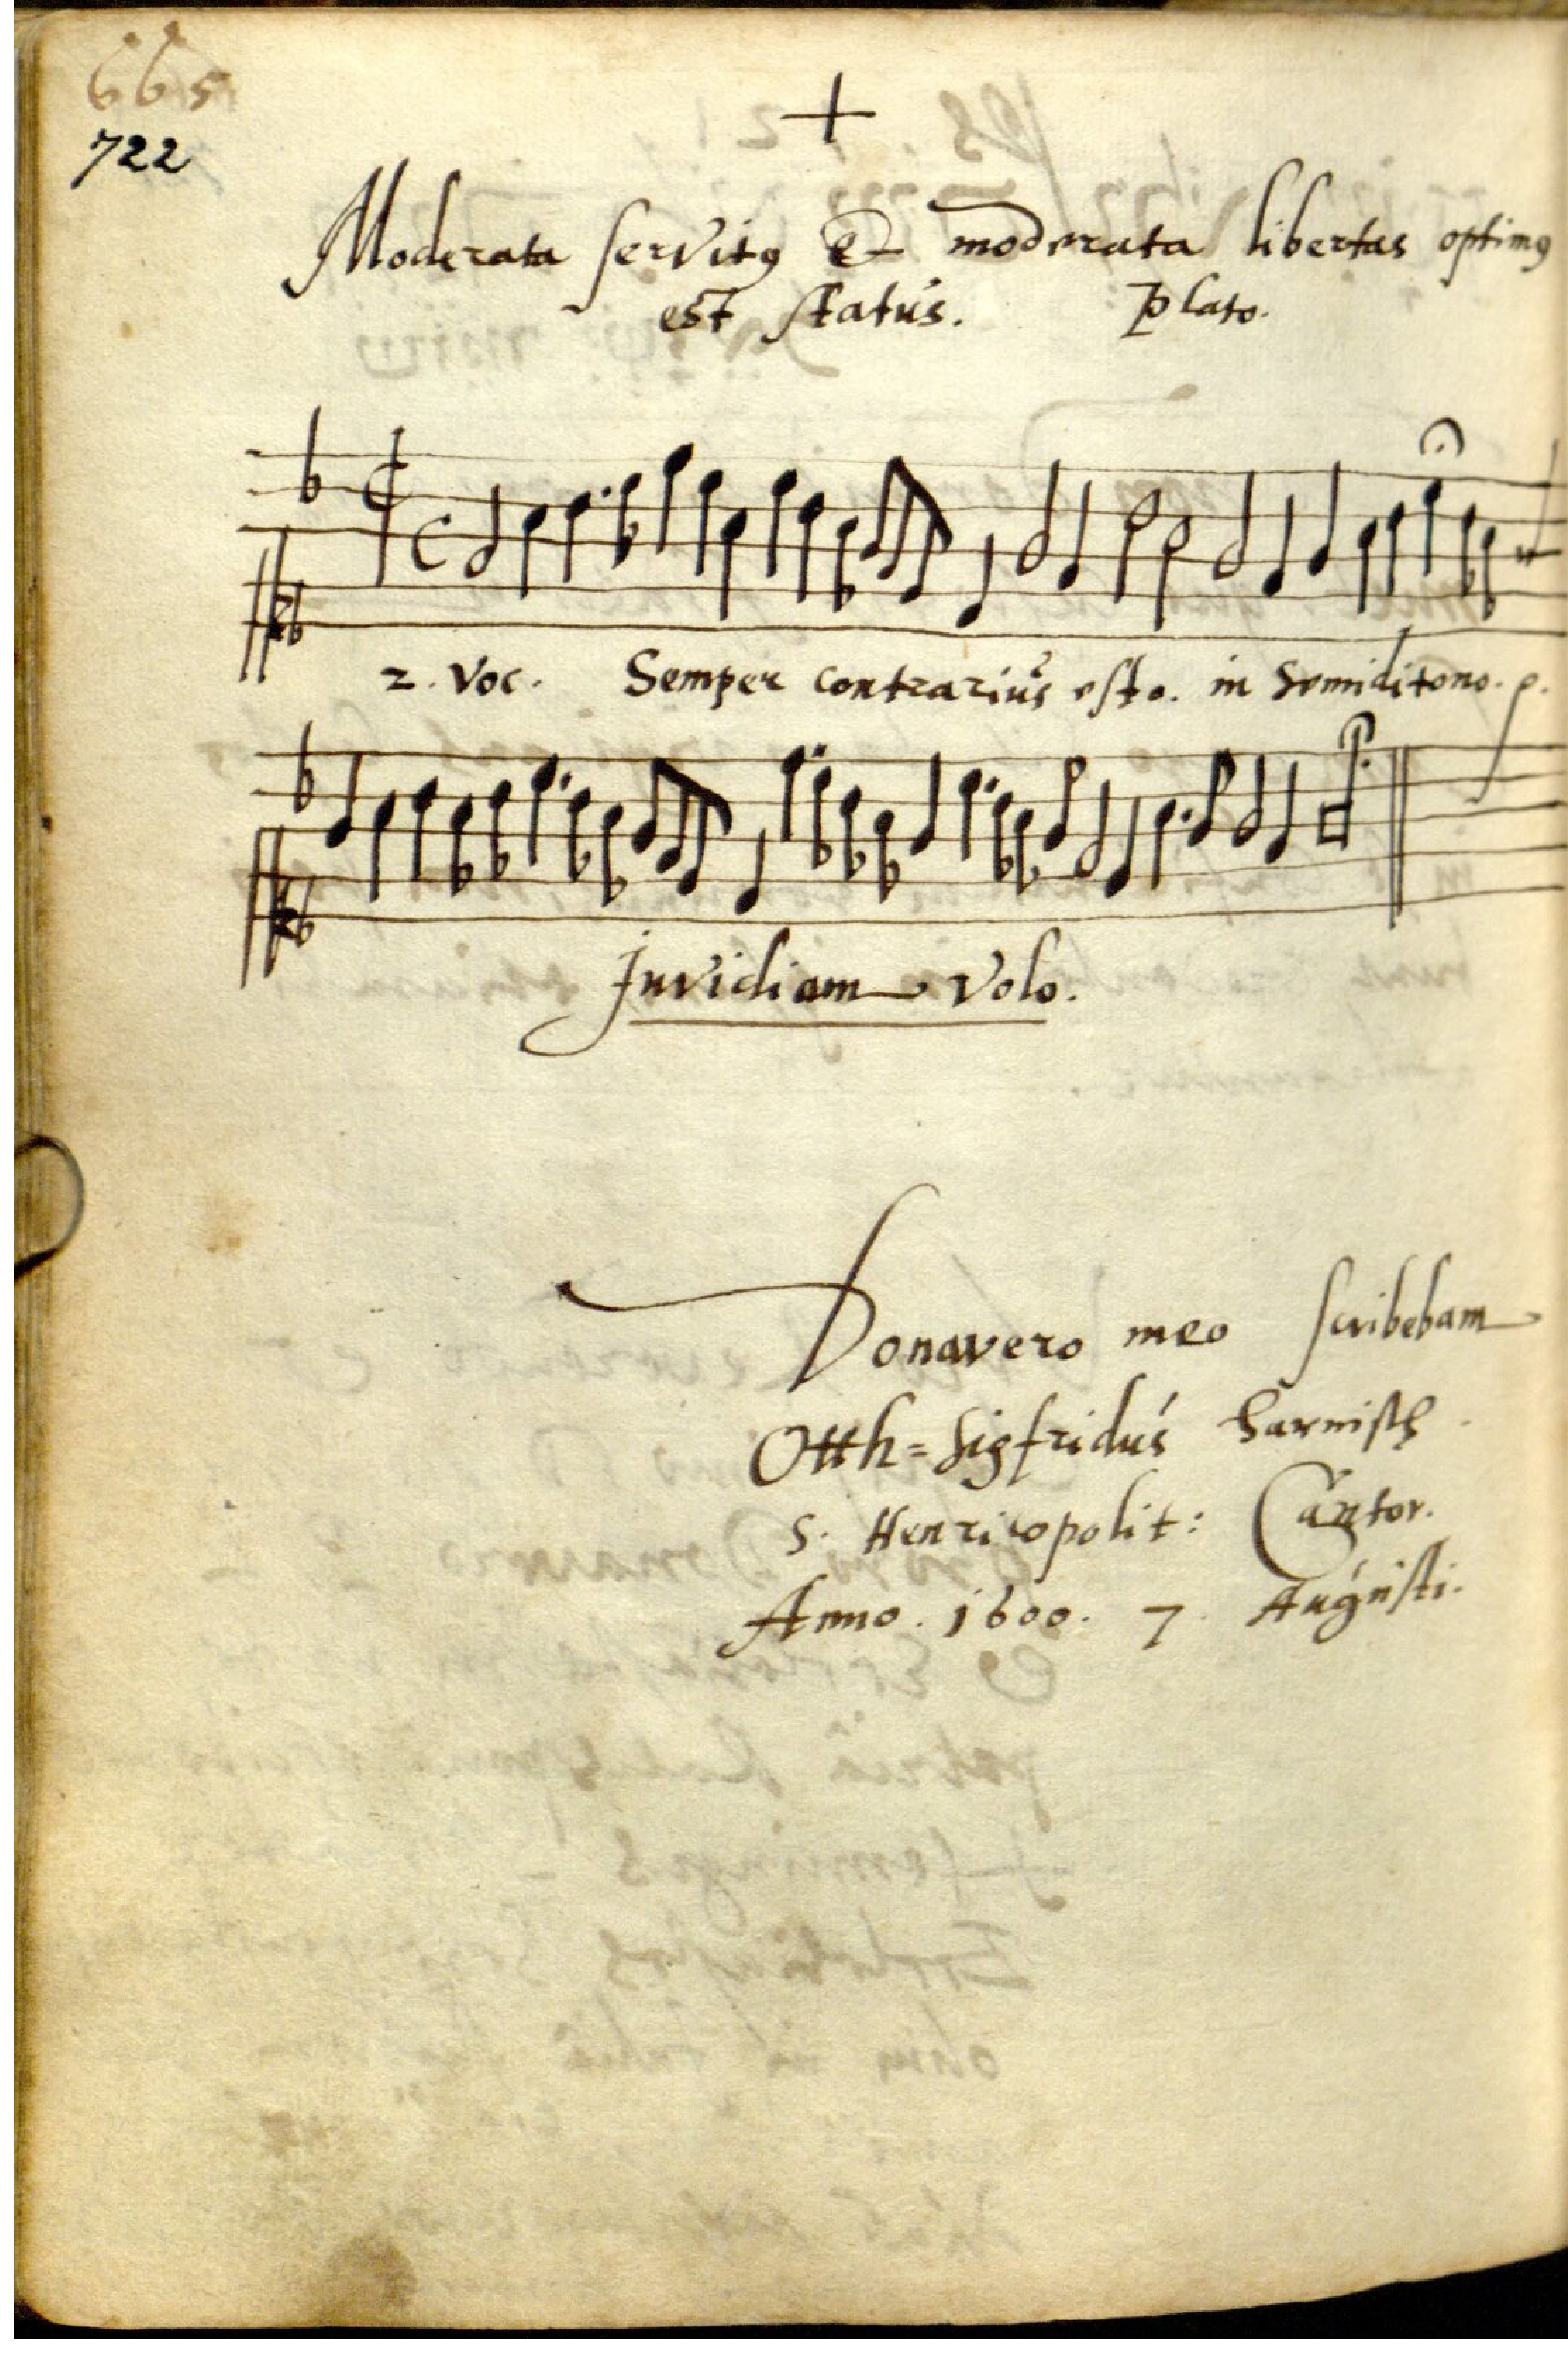 665
722
Moderata servitꝰ et moderata libertas optimꝰ
est status. Plato.
2. Voc. Semper contrarius esto. in Semiditono. p.
Invidiam volo.
Donavero meo scribebam
Otth=Sigfridus Harnisch
S. Henricopolit: Cantor.
Anno. 1600. 7. Augusti.